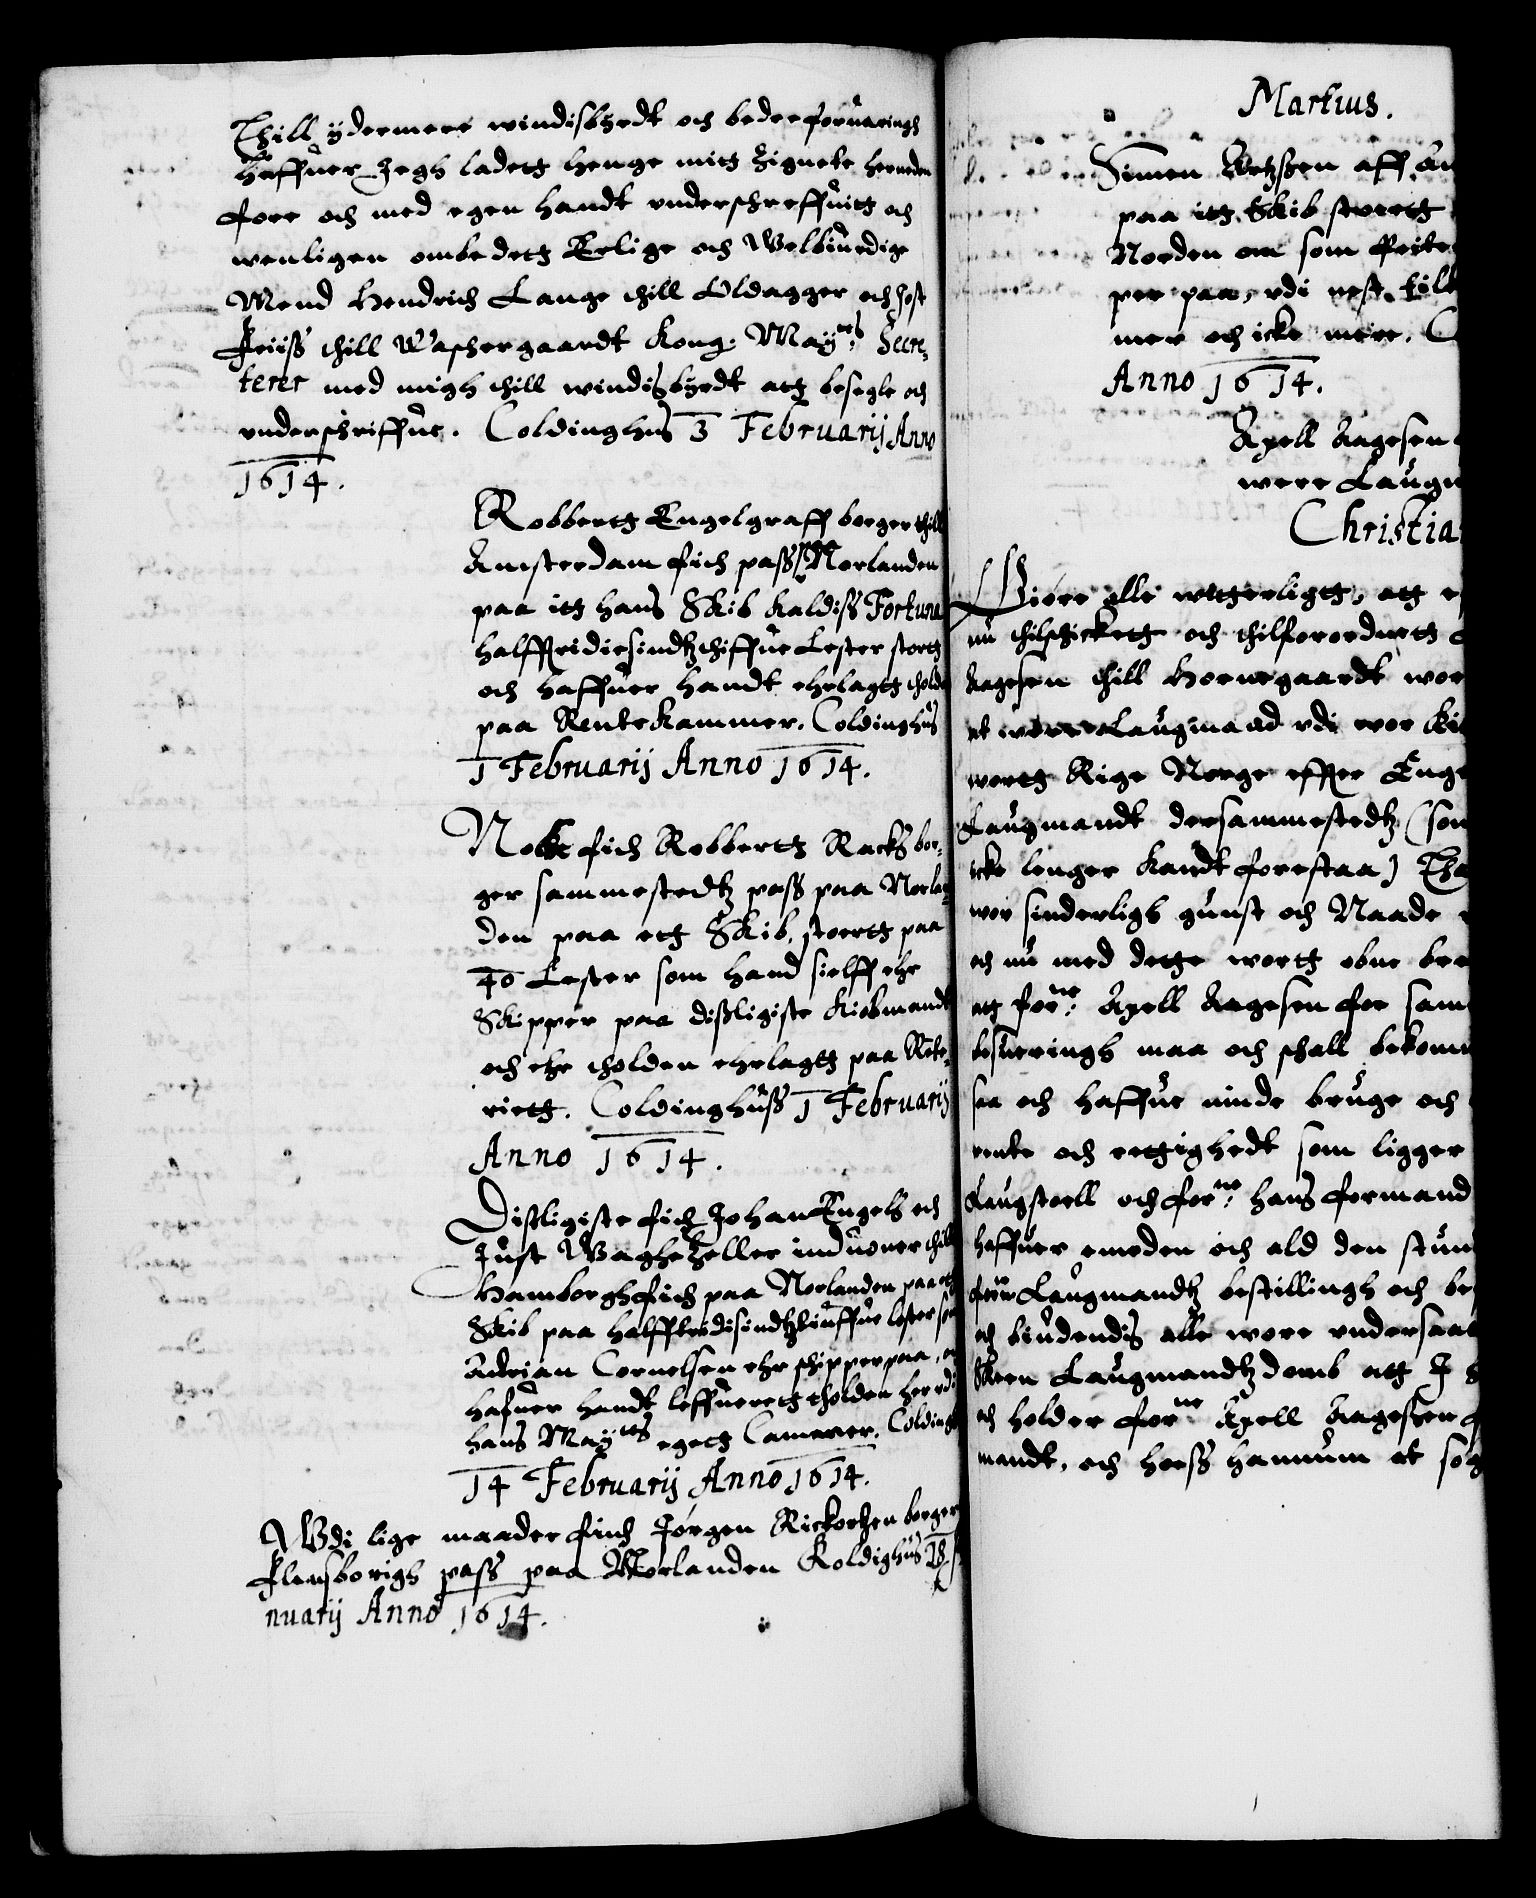 Thill ydermere windisbyrdt och bedre foruaringh
Haffuer Jegh ladett henge mitt Zignete herneden
fore och med egen handt underschreffuitt och
wenligen ombedett Erlige och Welbiurdige
Mend Hendrich Lange thill Oldagger och Jost
Friiss thill Waschergaardt Kong: May:tts Secre-
terer med migh thill windisbyrdt att besegle och
underschriffue. Coldinghus 3 Februarij Anno
1614.
Robbertt Engelgraff borger thill
Amsterdam fich pass paa Norlanden
paa itt hans Skib kaldiss Fortuna
halfftridiesindtzthiffue Lester stortt
och haffuer handt erlagtt tholden
paa Rentekammer. Coldinghus
1 Februarij Anno 1614.
Nock fich Robbertt Racks bor-
ger sammestedtz pass paa Norlan-
den paa ett Skib, stoertt paa
40 Lester som hand sielff ehr
Skipper paa disligiste Kiobmandt
och ehr tholden erlagtt paa Rente-
riett. Coldinghuss 1 Februarij
Anno 1614.
Disligiste fich Johan Engels och
Just Waghe Zeller induoner thill
Hamborgh fich paa Norlanden paa ett
Skib paa halfftridisindtztiuffue lester som
Adrian Cornelsen ehr schipper paa, och
hafuer handt leffuerett tholden her udi
hans May:tts egett Cammer. Coldingh
14 Februarij Anno 1614.
Udi lige maader finch Jórgen Rickertzen borger
Flensborigh pass paa Norlanden Koldighus 18
nuarij Anno 1614.
Martius.
Simen aff Am
paa itt Skib stoertt
Norden om som Peite
per paa, udi nest till
mer och icke mere. C
Anno 1614.
Axell Aagesen
were Laugm
Christia
Giore alle witterligtt, att e
nu thilschickett och thilforordnett
Aagesen thill Hornegaardt wor
at were Laugmand udi wor Ki
wortt Rige Norge effter Enge
Laugmandt dersammestedtz (som
icke lenger kandt forestaa) Tha
wor sinderligh gunst och Naade
och nu med dette wortt obne bre
att for:ne Axell Aagesen for sam
besueringh maa och schall bekomm
saa och haffue niude bruge och
rente och rettighedt som ligger
Laugstoell och for:ne hans formand
haffuer emeden och ald den stun
for:ne Laugmandtz bestillingh och be
och biudendis alle wore undersaa
Skeen Laugmandtz domb att J
och holder for:ne Axell Aagesen f
mandt, och hoess hannum at sog